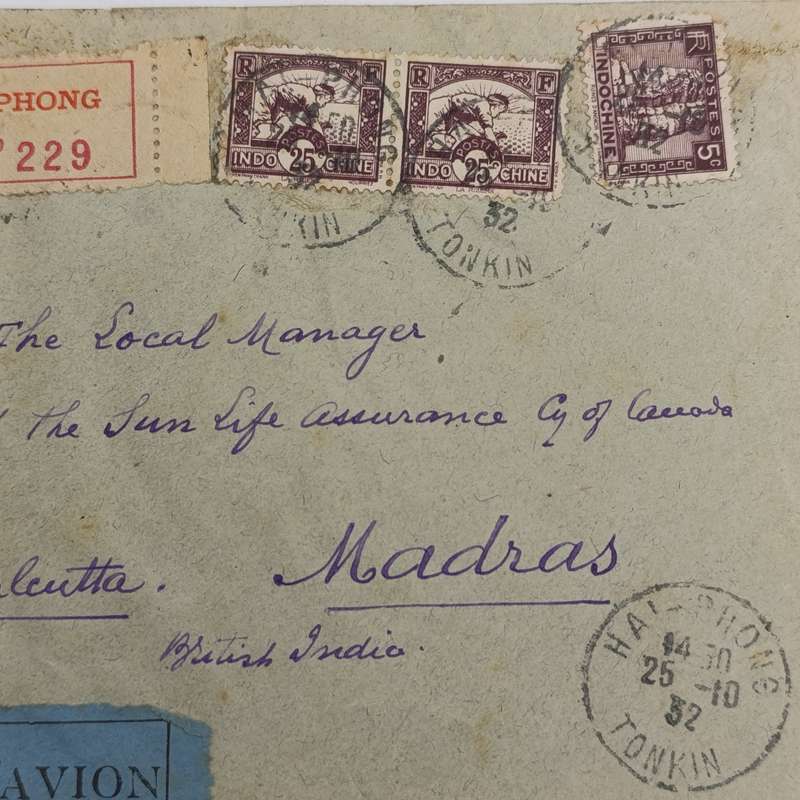 PHONG
229
R F
POSTES
INDO 25c CHINE
R F
POSTES
INDO 25c CHINE
RF POSTES 5c
INDOCHINE
TONKIN
32
TONKIN
The Local Manager
the Sun Life Assurance Cy of Canada
lcutta.
Madras
British India.
HAI-PHONG
14 30
25 -10
32
TONKIN
AVION